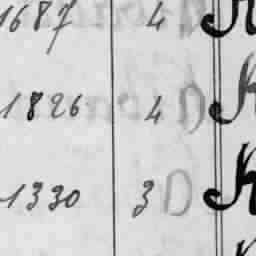 1687 4 K
1826 4 K
1330 3 K